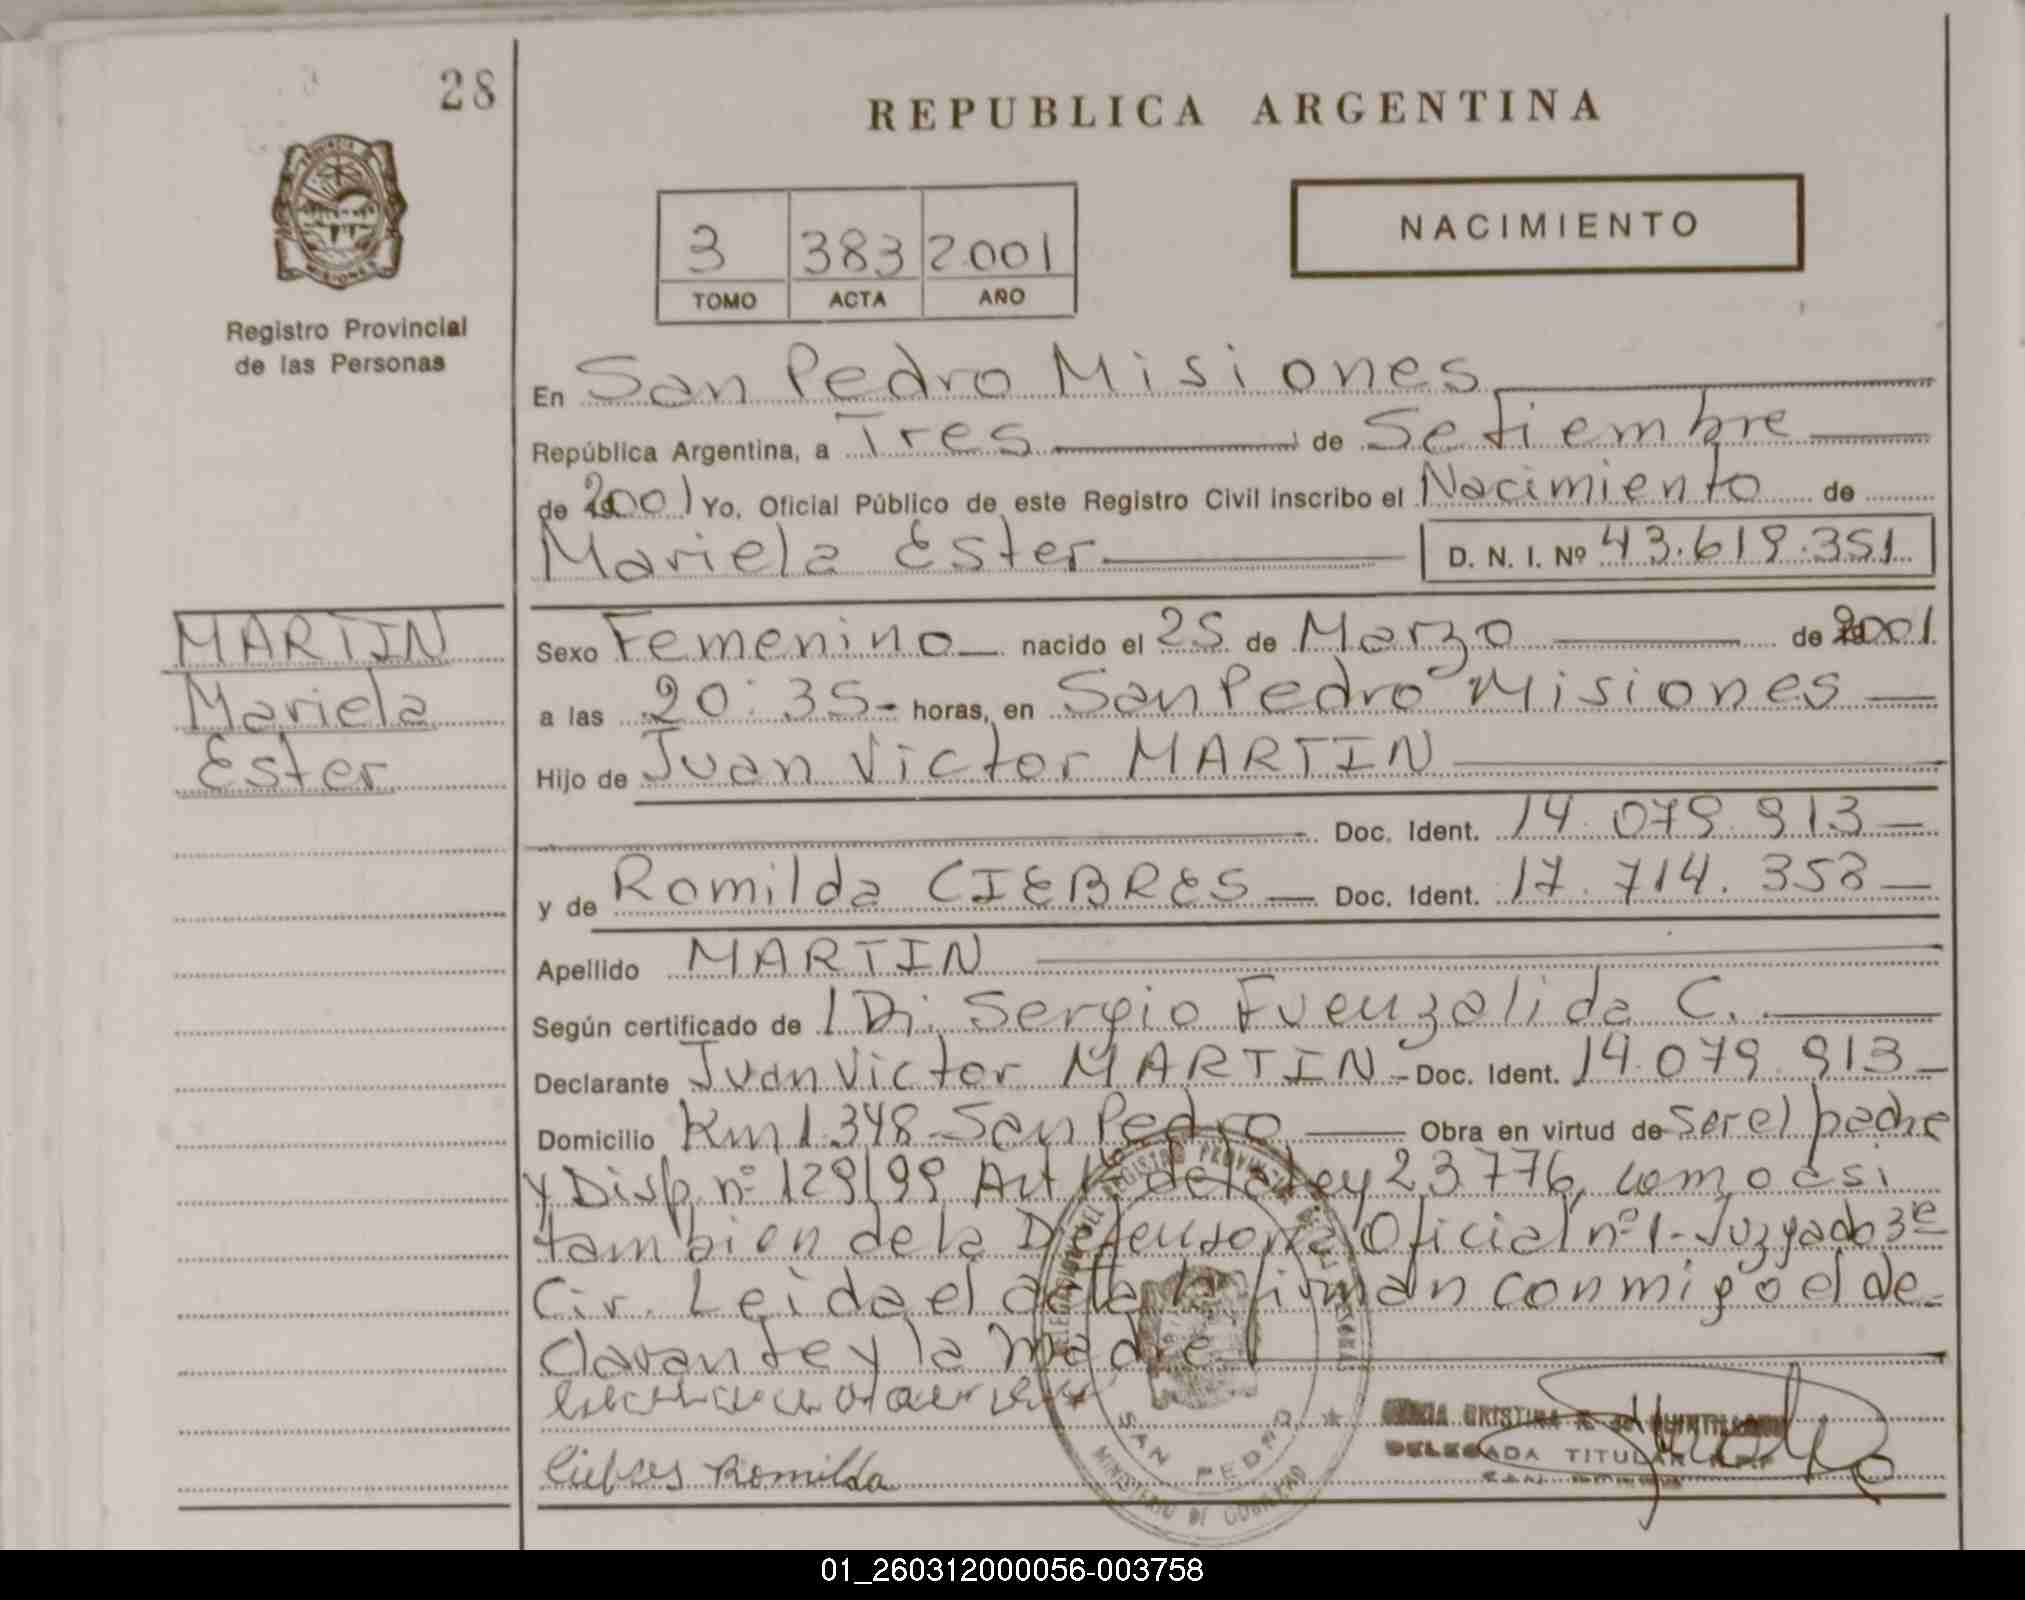 28
REPUBLICA ARGENTINA
3 383 2001
TOMO ACTA AÑO
NACIMIENTO
Registro Provincial
de las Personas
En San Pedro Misiones
República Argentina, a Tres de Setiembre
de 2001 Yo, Oficial Público de este Registro Civil inscribo el Nacimiento de
Mariela Ester D. N. I. Nº 43.619.351
MARTIN
Mariela
Ester
Sexo Femenino nacido el 25 de Marzo de 2001
a las 20:35- horas, en San Pedro Misiones
Hijo de Juan Victor MARTIN
Doc. Ident. 14.079.913
y de Romilda CIEBRES Doc. Ident. 17.714.353
Apellido MARTIN
Según certificado de Sergio Fuenzalida C.
Declarante Juan Victor MARTIN - Doc. Ident. 14.079.913
Domicilio Km 1.348 San Pedro Obra en virtud de ser el padre
y Disp. nº 129/99 Art. de la Ley 23.776, como asi
tambien de la Defensoria Oficial nº 1 - Juzgado 3e
Cir. Leida el acta la firman conmigo el de-
clarante y la madre
Ciebres Romilda
CRISTINA
DELEGADA TITULAR
REGISTRO PROVINCIAL DE LAS PERSONAS
SAN PEDRO
MINISTERIO DE GOBIERNO
01_260312000056-003758